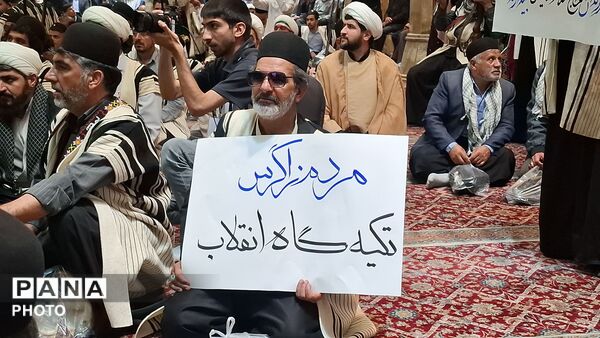 مردم زاگرس
تکیه گاه انقلاب
PANA
PHOTO